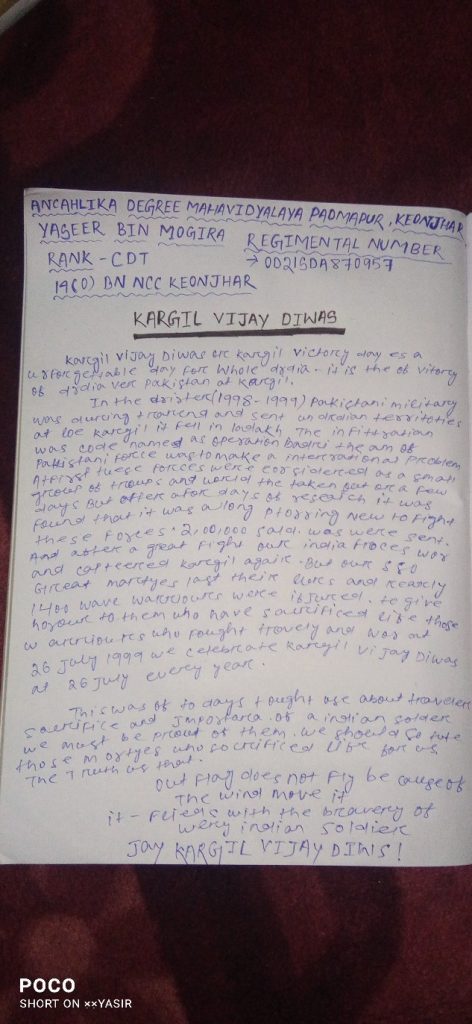 ANCAHLIKA DEGREE MAHAVIDYALAYA PADMAPUR, KEONJHAR
YASEER BIN MOGIRA REGIMENTAL NUMBER
RANK - CDT → OD21SDA870957
19(O) BN NCC KEONJHAR
KARGIL VIJAY DIWAS
Kargil Vijay Diwas or Kargil victory day es a
unforgetable day for whole - it is the ob vitory
of ver Pakistan at Kargil.
In the (1998-1999) Pakistani military
was and sent territoties
at loc Kargil it fell in ladakh. The infittration
was code named as operation Badri the am of
Pakistani force was to make a international problem
At first these forces were considered as a small
group of and would the taken out or a few
days But after afor days of research it was
found that it was a long New to fight
these forces. 2,00,000 sold. was were sent.
And after a great fight our india froces wor
and Kargil again. But our 550
Great martyes last their lives and nearly
1400 wave were injured. to give
honour to them who have sacrificed life those
who fought and wor at
26 July 1999 we celebrate Kargil Vijay Diwas
at 26 July every year.
This was of to days about
sacrifice and of a indian solder
we must be proud of them. we should
those who socrificed life for us
The Truth us that.
Out flag does not fly be cause of
The wind move it
it - flieds with the bravery of
wery indian soldier
JAY KARGIL VIJAY DIWS!
POCO
SHORT ON ××YASIR